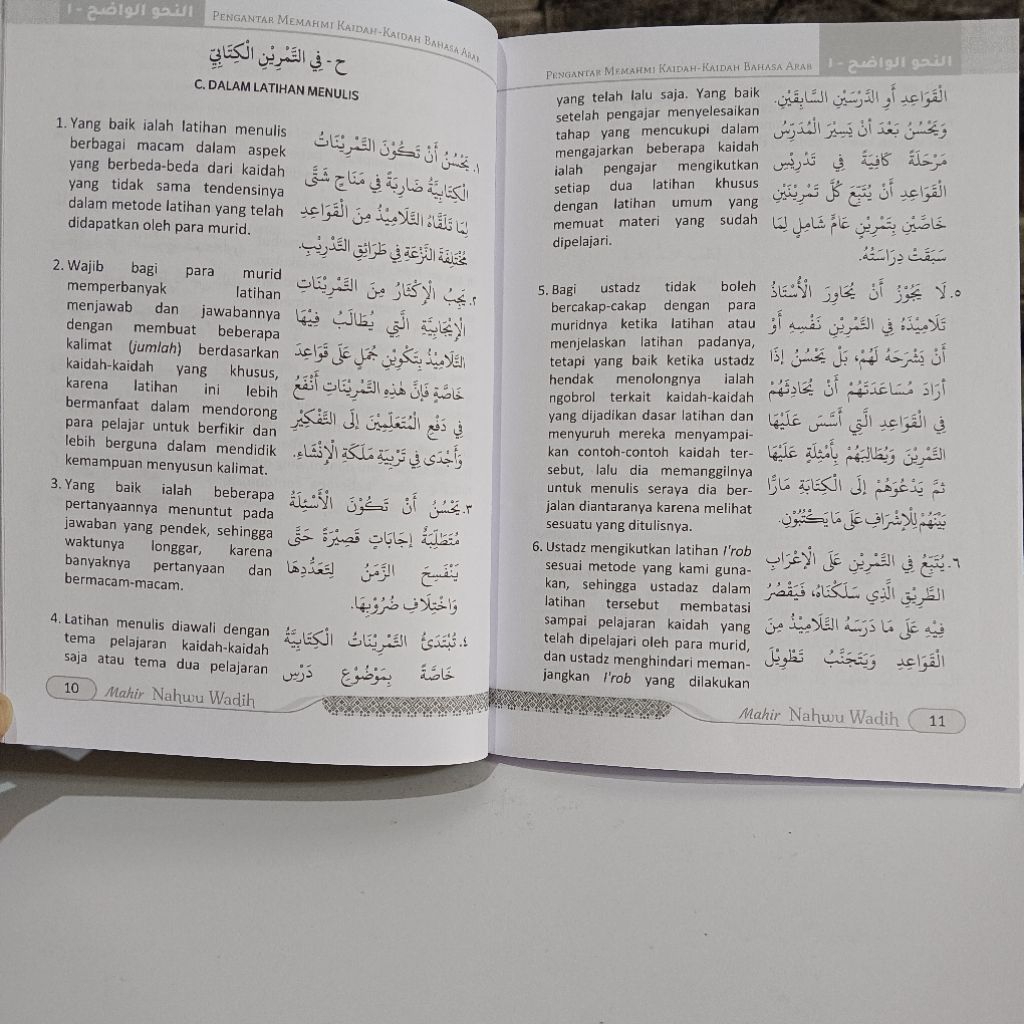 النحو الواضح - ١
PENGANTAR MEMAHMI KAIDAH-KAIDAH BAHASA ARAB
ح - فِي التَّمْرِيْنِ الْكِتَابِيِّ
C. DALAM LATIHAN MENULIS
1. Yang baik ialah latihan menulis
berbagai macam dalam aspek
yang berbeda-beda dari kaidah
yang tidak sama tendensinya
dalam metode latihan yang telah
didapatkan oleh para murid.
١. يَحْسُنُ أَنْ تَكُوْنَ التَّمْرِيْنَاتُ
الْكِتَابِيَّةُ ضَارِبَةً فِي مَنَاحٍ شَتَّى
لِمَا تَلَقَّاهُ التَّلَامِيْذُ مِنَ الْقَوَاعِدِ
مُخْتَلِفَةَ النَّزْعَةِ فِي طَرَائِقِ التَّدْرِيْبِ.
2. Wajib bagi para murid
memperbanyak latihan
menjawab dan jawabannya
dengan membuat beberapa
kalimat (jumlah) berdasarkan
kaidah-kaidah yang khusus,
karena latihan ini lebih
bermanfaat dalam mendorong
para pelajar untuk berfikir dan
lebih berguna dalam mendidik
kemampuan menyusun kalimat.
٢. يَجِبُ الْإِكْثَارُ مِنَ التَّمْرِيْنَاتِ
الْإِيْجَابِيَّةِ الَّتِي يُطَالَبُ فِيْهَا
التَّلَامِيْذُ بِتَكْوِيْنِ جُمَلٍ عَلَى قَوَاعِدَ
خَاصَّةٍ فَإِنَّ هٰذِهِ التَّمْرِيْنَاتِ أَنْفَعُ
فِي دَفْعِ الْمُتَعَلِّمِيْنَ إِلَى التَّفْكِيْرِ
وَأَجْدَى فِي تَرْبِيَةِ مَلَكَةِ الْإِنْشَاءِ.
3. Yang baik ialah beberapa
pertanyaannya menuntut pada
jawaban yang pendek, sehingga
waktunya longgar, karena
banyaknya pertanyaan dan
bermacam-macam.
٣. يَحْسُنُ أَنْ تَكُوْنَ الْأَسْئِلَةُ
مُتَطَلِّبَةً إِجَابَاتٍ قَصِيْرَةً حَتَّى
يَنْفَسِحَ الزَّمَنُ لِتَعَدُّدِهَا
وَاخْتِلَافِ ضُرُوْبِهَا.
4. Latihan menulis diawali dengan
tema pelajaran kaidah-kaidah
saja atau tema dua pelajaran
٤. تُبْتَدَئُ التَّمْرِيْنَاتُ الْكِتَابِيَّةُ
خَاصَّةً بِمَوْضُوْعِ دَرْسِ
10 Mahir Nahwu Wadih
PENGANTAR MEMAHMI KAIDAH-KAIDAH BAHASA ARAB
النحو الواضح - ١
yang telah lalu saja. Yang baik
setelah pengajar menyelesaikan
tahap yang mencukupi dalam
mengajarkan beberapa kaidah
ialah pengajar mengikutkan
setiap dua latihan khusus
dengan latihan umum yang
memuat materi yang sudah
dipelajari.
الْقَوَاعِدِ أَوِ الدَّرْسَيْنِ السَّابِقَيْنِ.
وَيَحْسُنُ بَعْدَ أَنْ يَسِيْرَ الْمُدَرِّسُ
مَرْحَلَةً كَافِيَةً فِي تَدْرِيْسِ
الْقَوَاعِدِ أَنْ يُتْبِعَ كُلَّ تَمْرِيْنَيْنِ
خَاصَّيْنِ بِتَمْرِيْنٍ عَامٍّ شَامِلٍ لِمَا
سَبَقَتْ دِرَاسَتُهُ.
5. Bagi ustadz tidak boleh
bercakap-cakap dengan para
muridnya ketika latihan atau
menjelaskan latihan padanya,
tetapi yang baik ketika ustadz
hendak menolongnya ialah
ngobrol terkait kaidah-kaidah
yang dijadikan dasar latihan dan
menyuruh mereka menyampai-
kan contoh-contoh kaidah ter-
sebut, lalu dia memanggilnya
untuk menulis seraya dia ber-
jalan diantaranya karena melihat
sesuatu yang ditulisnya.
٥. لَا يَجُوْزُ أَنْ يُحَاوِرَ الْأُسْتَاذُ
تَلَامِيْذَهُ فِي التَّمْرِيْنِ نَفْسِهِ أَوْ
أَنْ يَشْرَحَهُ لَهُمْ، بَلْ يَحْسُنُ إِذَا
أَرَادَ مُسَاعَدَتَهُمْ أَنْ يُحَادِثَهُمْ
فِي الْقَوَاعِدِ الَّتِي أَسَّسَ عَلَيْهَا
التَّمْرِيْنَ وَيُطَالِبَهُمْ بِأَمْثِلَةٍ عَلَيْهَا
ثُمَّ يَدْعُوَهُمْ إِلَى الْكِتَابَةِ مَارًّا
بَيْنَهُمْ لِلْإِشْرَافِ عَلَى مَا يَكْتُبُوْنَ.
6. Ustadz mengikutkan latihan I'rob
sesuai metode yang kami guna-
kan, sehingga ustadaz dalam
latihan tersebut membatasi
sampai pelajaran kaidah yang
telah dipelajari oleh para murid,
dan ustadz menghindari meman-
jangkan I'rob yang dilakukan
٦. يُتَّبَعُ فِي التَّمْرِيْنِ عَلَى الْإِعْرَابِ
الطَّرِيْقِ الَّذِي سَلَكْنَاهُ، فَيَقْصُرُ
فِيْهِ عَلَى مَا دَرَسَهُ التَّلَامِيْذُ مِنَ
الْقَوَاعِدِ وَيَتَجَنَّبُ تَطْوِيْلَ
Mahir Nahwu Wadih 11